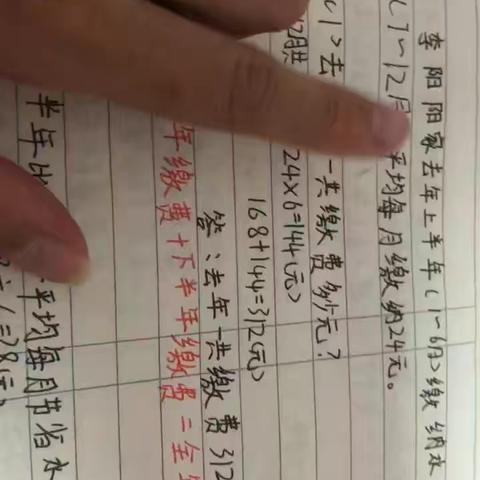 李阳阳家去年上半年(1~6月)缴纳水
(7~12月 平均每月缴纳24元。
(1)去 一共缴费多少元?
24×6=144(元)
168+144=312(元)
答:去年一共缴费312
年缴费+下半年缴费=全年
半年比 平均每月节省水
=28(元)